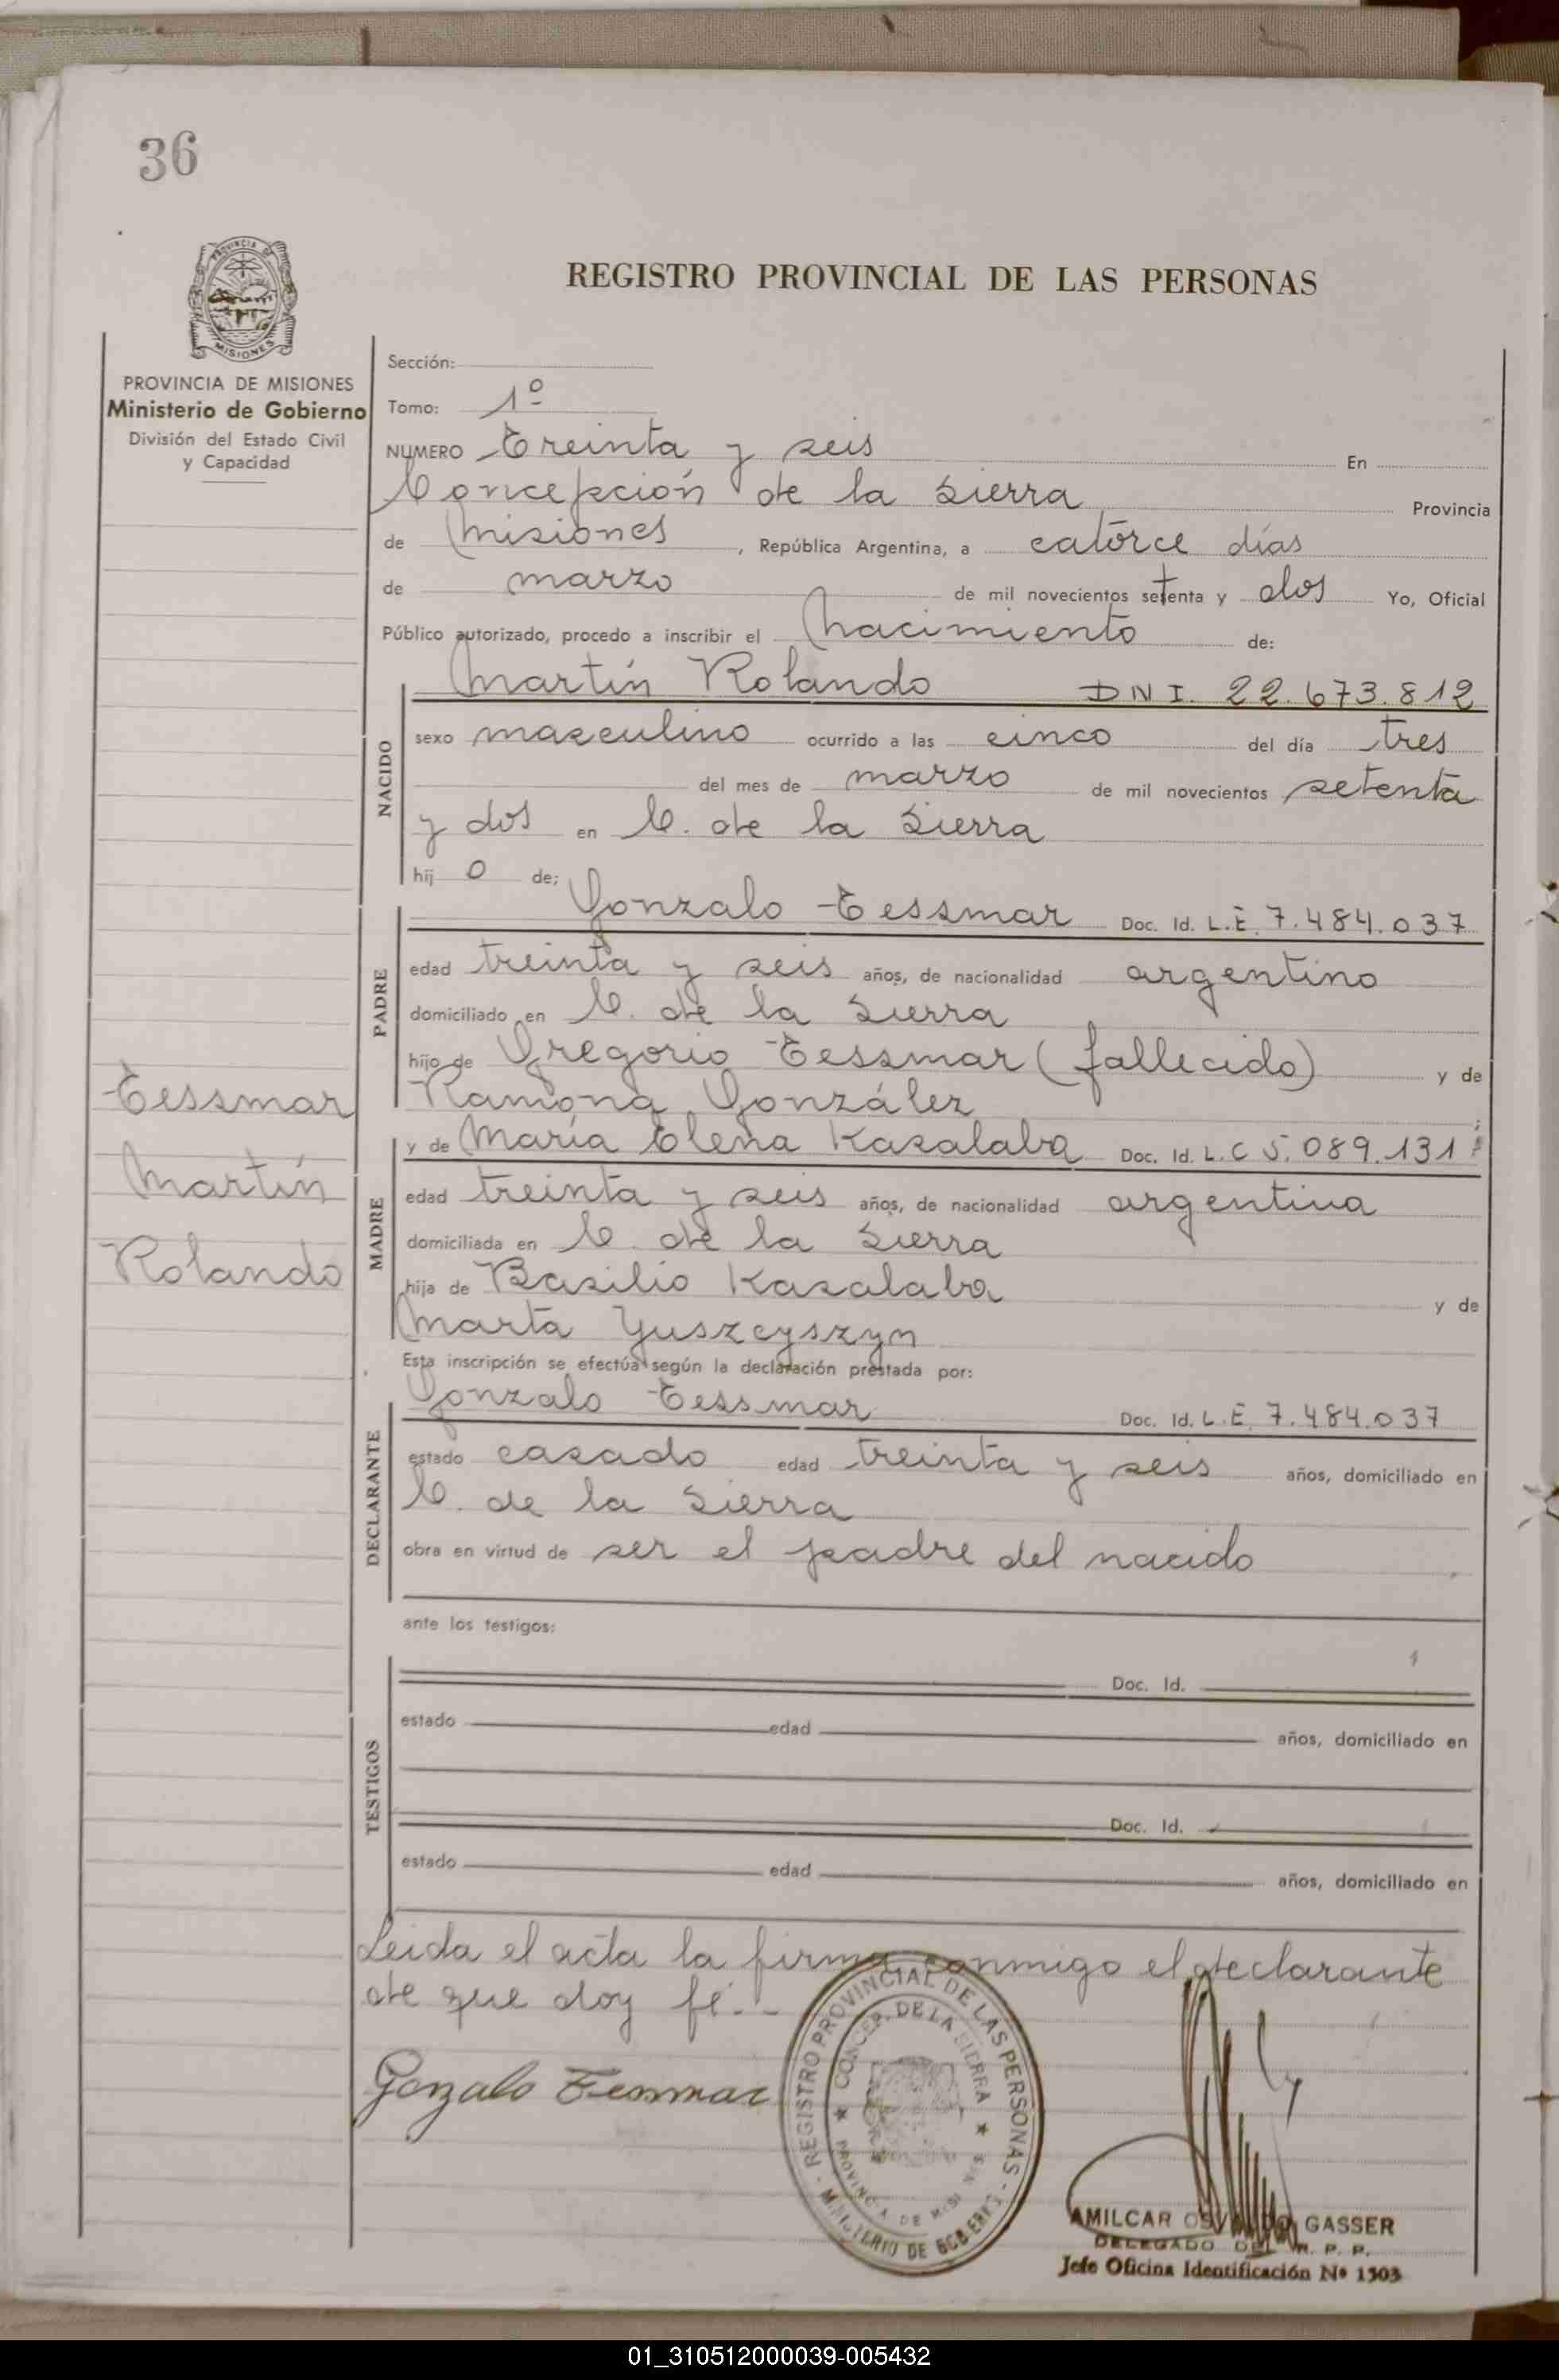 36
PROVINCIA DE
MISIONES
REGISTRO PROVINCIAL DE LAS PERSONAS
PROVINCIA DE MISIONES
Ministerio de Gobierno
División del Estado Civil
y Capacidad
Sección:
Tomo: 1º
NUMERO Treinta y seis En
Concepción de la Sierra Provincia
de Misiones, República Argentina, a catorce días
de marzo de mil novecientos setenta y dos Yo, Oficial
Público autorizado, procedo a inscribir el Nacimiento de:
NACIDO
Martín Rolando DNI. 22.673.812
sexo masculino ocurrido a las cinco del día tres
del mes de marzo de mil novecientos setenta
y dos en C. de la Sierra
hij o de;
PADRE
Gonzalo Tessmar Doc. Id. L.E. 7.484.037
edad treinta y seis años, de nacionalidad argentino
domiciliado en C. de la Sierra
hijo de Gregorio Tessmar (fallecido) y de
Ramona González
Tessmar
Martín
Rolando
MADRE
y de María Elena Kasalaba Doc. Id. L.C 5.089.131
edad treinta y seis años, de nacionalidad argentina
domiciliada en C. de la Sierra
hija de Basilio Kasalaba y de
Marta Yuszcyszyn
Esta inscripción se efectúa según la declaración prestada por:
DECLARANTE
Gonzalo Tessmar Doc. Id. L.E. 7.484.037
estado casado edad treinta y seis años, domiciliado en
C. de la Sierra
obra en virtud de ser el padre del nacido
ante los testigos:
TESTIGOS
Doc. Id.
estado edad años, domiciliado en
Doc. Id.
estado edad años, domiciliado en
Leida el acta la firma conmigo el declarante
de que doy fé.-
Gonzalo Tessmar
REGISTRO PROVINCIAL DE LAS PERSONAS
MINISTERIO DE GOBIERNO
CONCEP. DE LA SIERRA
PROVINCIA DE MISIONES
AMILCAR OSVALDO GASSER
DELEGADO DEL R. P. P.
Jefe Oficina Identificación Nº 1303
01_310512000039-005432